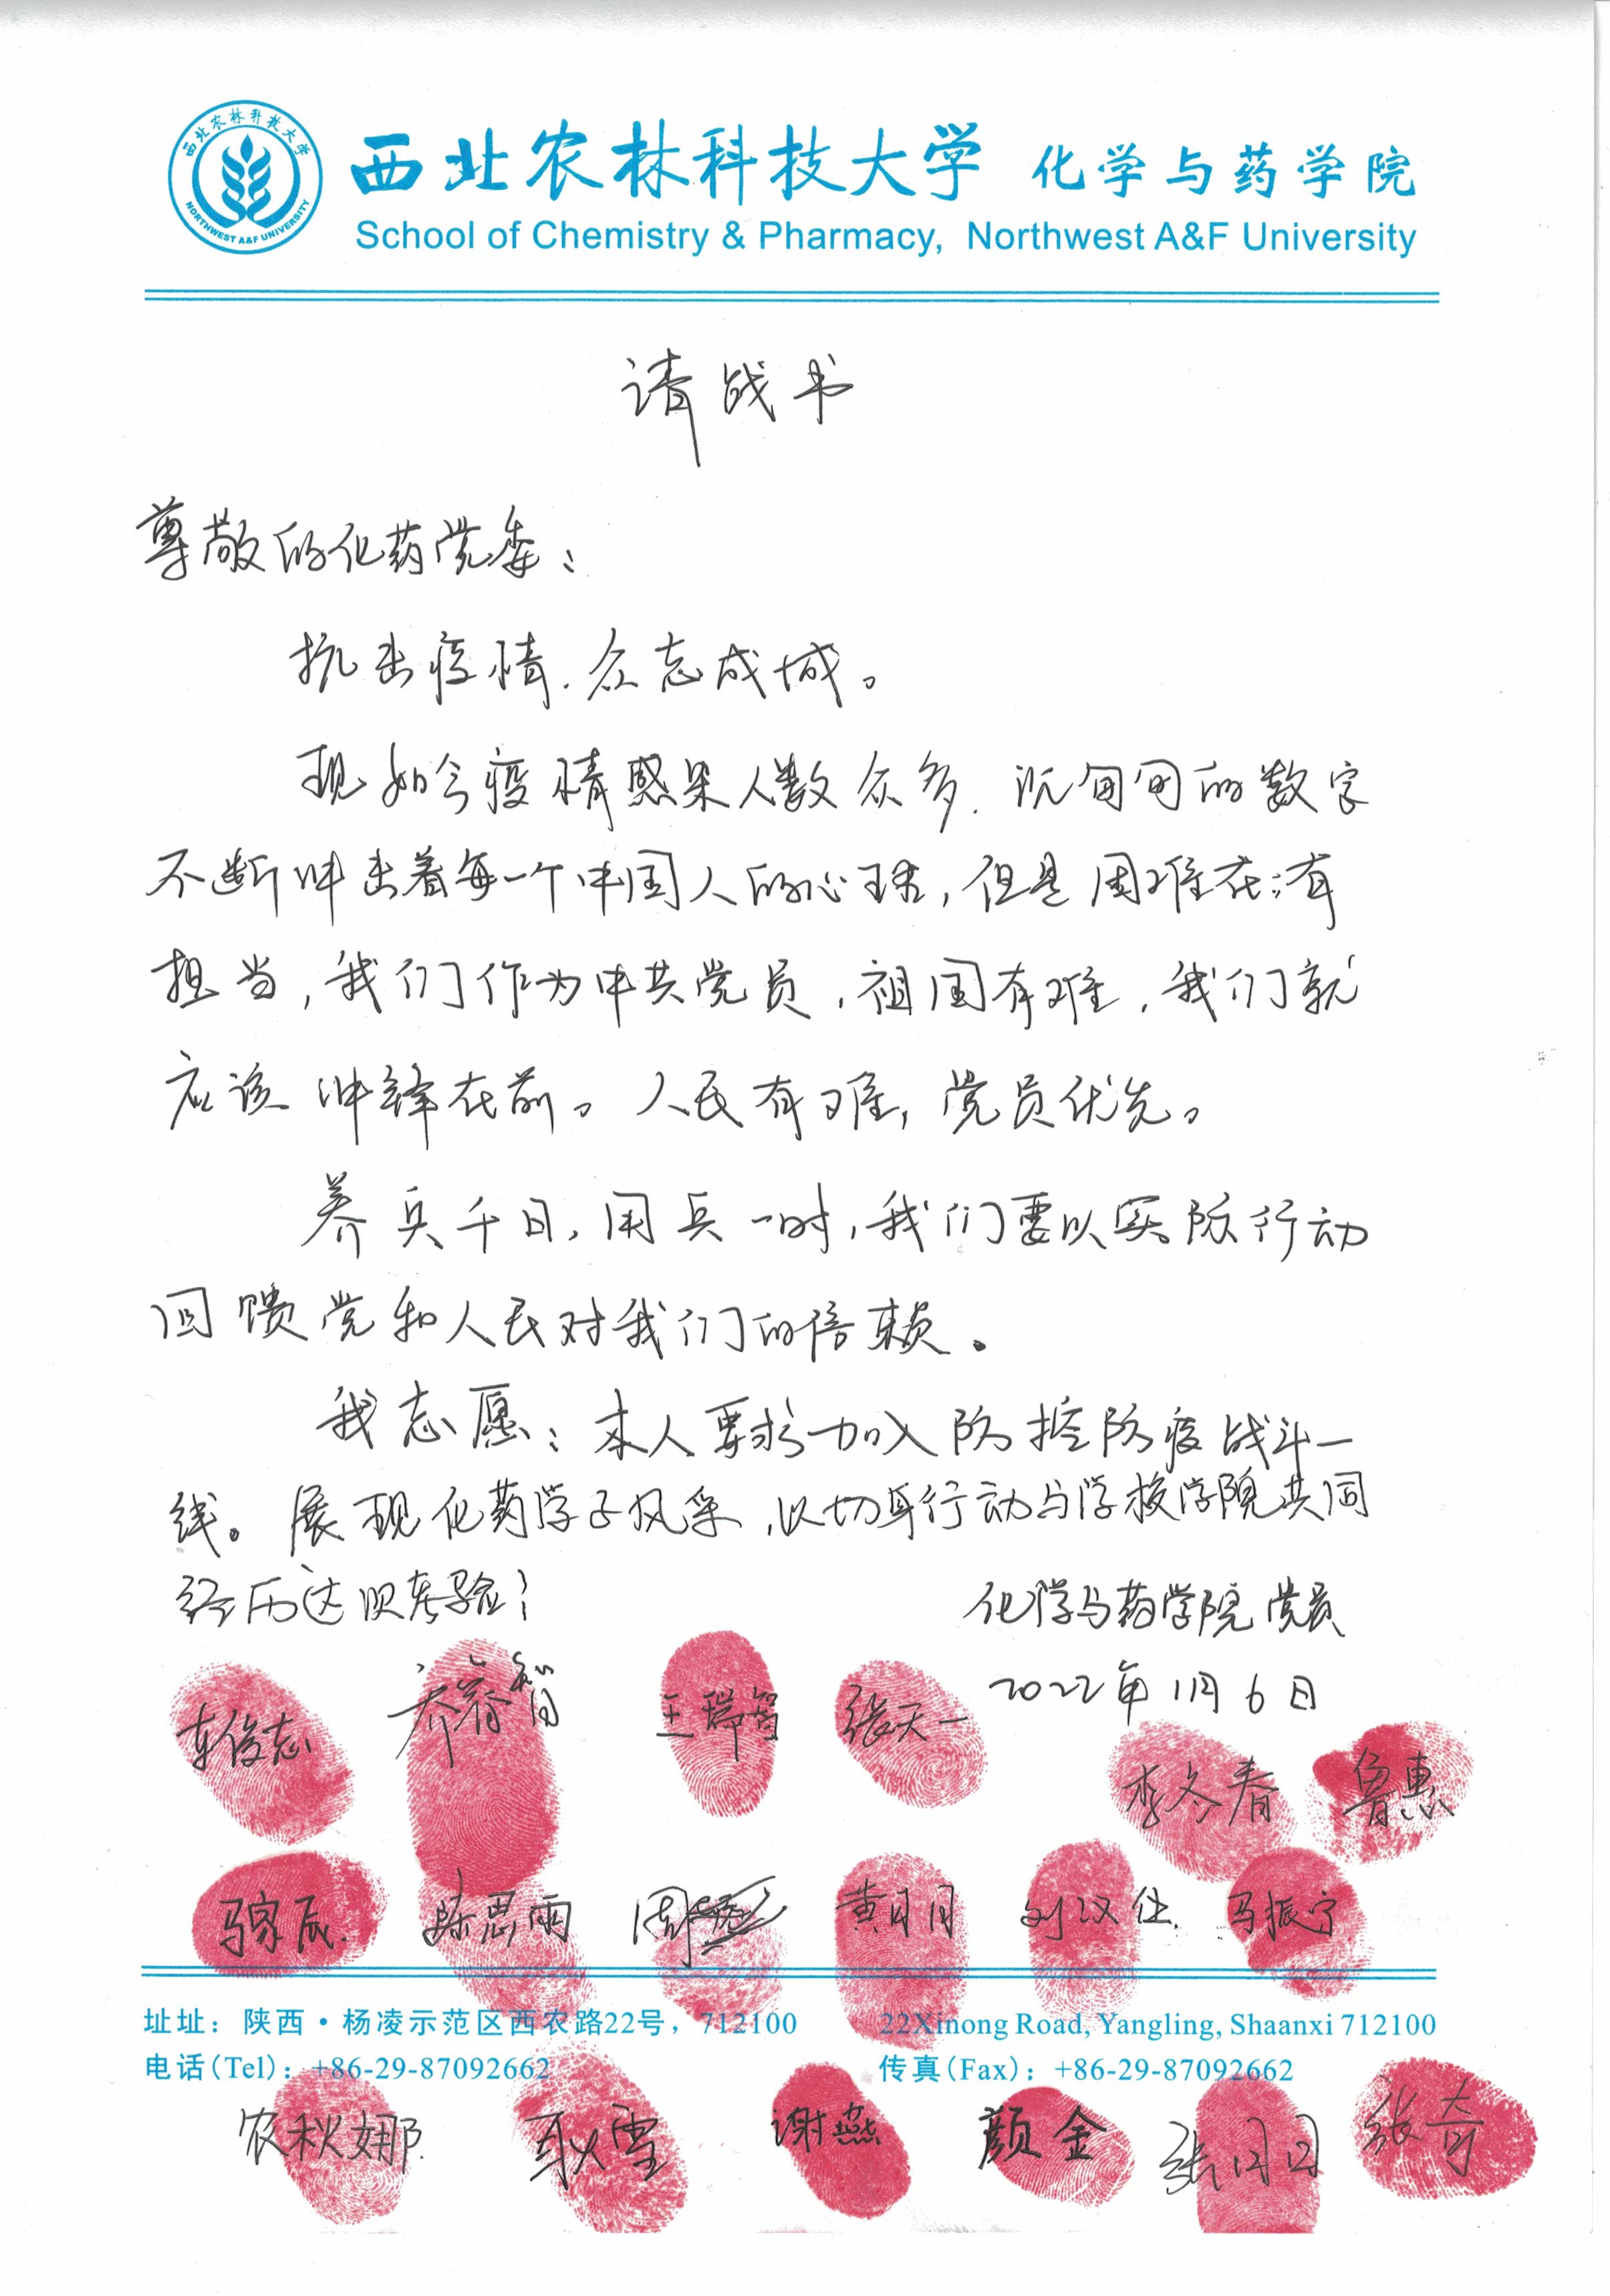 西北农林科技大学 化学与药学院
西北农林科技大学
NORTHWEST A&F UNIVERSITY
School of Chemistry & Pharmacy, Northwest A&F University
请战书
尊敬的化药党委：
抗击疫情，众志成城。
现如今疫情感染人数众多，沉甸甸的数字
不断冲击着每一个中国人的心球，但是困难在，有
担当，我们作为中共党员，祖国有难，我们就
应该冲锋在前。人民有难，党员优先。
养兵千日，用兵一时，我们要以实际行动
回馈党和人民对我们的信赖。
我志愿：本人要求加入防控防疫战斗一
线。展现化药学子风采，以切身行动与学校学院共同
经历这次考验！
化学与药学院党员
2022年1月6日
车俊志 乔睿智 王瑞智 张天一
李冬春 鲁惠
马家辰 陈思雨 黄月月 刘汉仕 马振宁
址址：陕西·杨凌示范区西农路22号，712100 22Xinong Road, Yangling, Shaanxi 712100
电话(Tel)：+86-29-87092662 传真(Fax)：+86-29-87092662
农秋娜 耿雪 谢燕 颜金 张月日 张奇